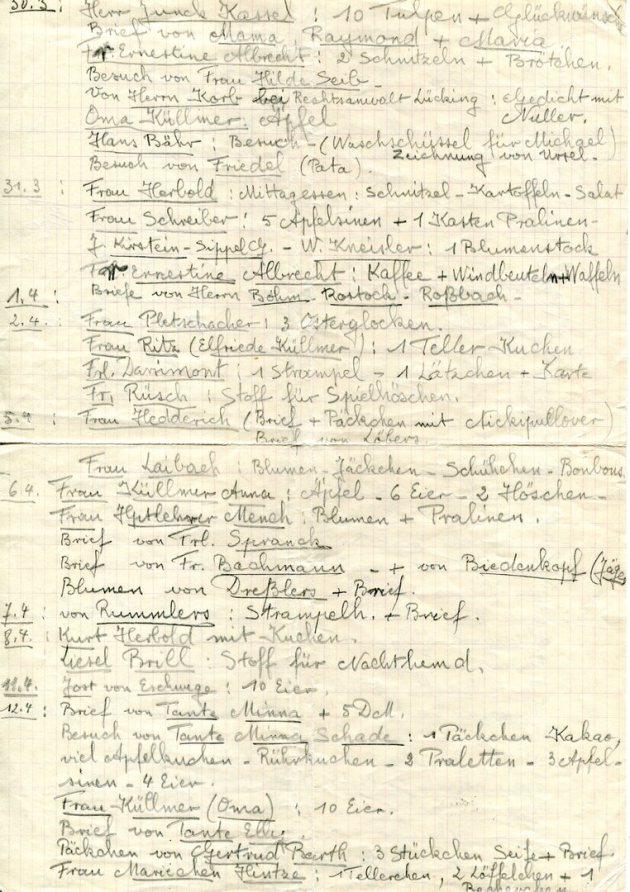 30.3: Herr Junck Kassel : 10 Tulpen + Glückwünsche
Brief von Mama, Raymond + Maria
Fr. Ernestine Albrecht : 2 Schnitzeln + Brötchen.
Besuch von Frau Hilde Seib -
Von Herrn Korb bei Rechtsanwalt Lücking : Gedicht mit
Oma Küllmer: Äpfel Nuller.
Hans Bähr : Besuch - (Waschschüssel für Michael)
Zeichnung von Ursel.
Besuch von Friedel (Pata).
31.3 : Frau Herbold : Mittagessen : Schnitzel - Kartoffeln - Salat
Frau Schreiber : 5 Apfelsinen + 1 Kasten Pralinen -
J. Kirstein - Sippel - W. Kneisler : 1 Blumenstock
Ernestine Albrecht : Kaffee + Windbeuteln + Waffeln
1.4 : Briefe von Herrn Böhm - Rostock - Roßbach -
2.4. : Frau Pletschacher : 3 Osterglocken.
Frau Ritz (Elfriede Küllmer) : 1 Teller Kuchen
Frl. Darimont : 1 Strampel - 1 Lätzchen + Karte
Fr. Rüsch : Stoff für Spielhöschen.
5.4 : Frau Hedderich (Brief + Päckchen mit Nickipullover)
Brief von Löbers.
Frau Laibach : Blumen - Jäckchen - Schühchen - Bonbons.
6.4. Frau Küllmer Anna : Äpfel - 6 Eier - 2 Höschen -
Frau Hptlehrer Mench : Blumen + Pralinen.
Brief von Frl. Spranck
Brief von Fr. Bachmann - + von Biedenkopf
Blumen von Dreßlers + Brief.
7.4 : von Rummlers : Strampelh. + Brief.
8.4. : Kurt Herbold mit Kuchen.
Liesel Brill : Stoff für Nachthemd.
11.4. Jost von Eschwege : 10 Eier.
12.4 : Brief von Tante Minna + 5 DM.
Besuch von Tante Minna Schade : 1 Päckchen Kakao,
viel Apfelkuchen - Rührkuchen - 2 Praletten - 3 Apfel-
sinen - 4 Eier.
Frau Küllmer (Oma) : 10 Eier.
Brief von Tante Elly.
Päckchen von Gertrud Barth : 3 Stückchen Seife + Brief.
Frau Mariechen Hintze : 1 Tellerchen, 2 Löffelchen + 1